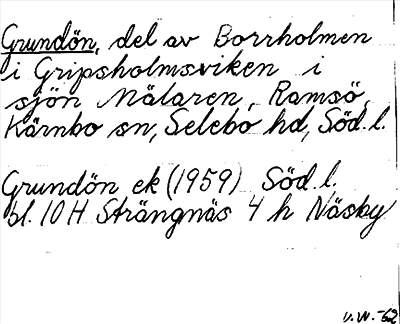 Grundön, del av Borrholmen
i Gripsholmsviken i
sjön Mälaren, Ramsö,
Kärnbo sn, Selebo hd, Söd. l.
Grundön ek (1959) Söd. l.
bl. 10 H Strängnäs 4 h Näsby
V.W.-62